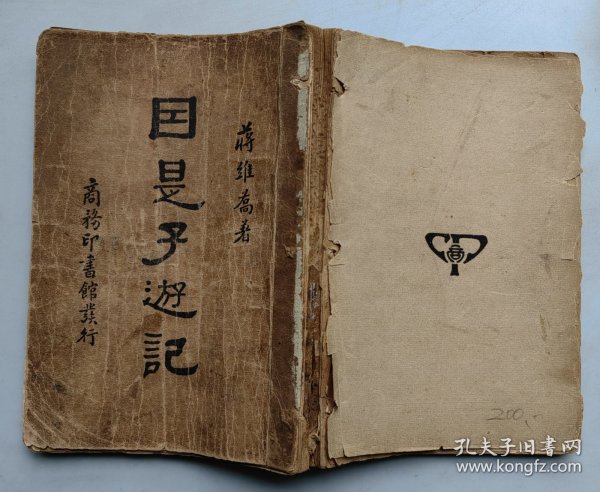 蔣維喬著
因是子遊記
商務印書館發行
商
CP
200,-
孔夫子旧书网
www.kongfz.com